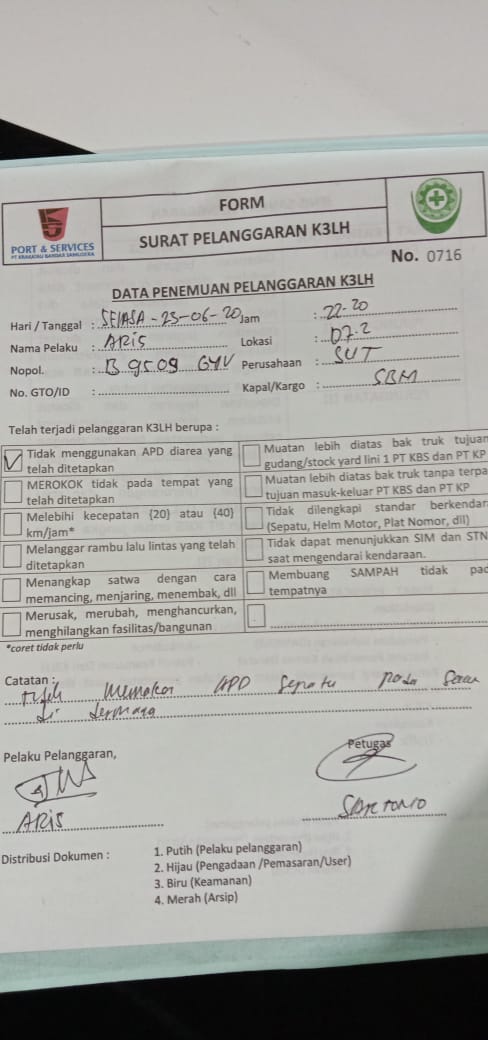 FORM
SURAT PELANGGARAN K3LH
PORT & SERVICES
PT KRAKATAU BANDAR SAMUDERA
No. 0716
DATA PENEMUAN PELANGGARAN K3LH
Hari / Tanggal : SELASA - 23-06-20 Jam : 22.20
Nama Pelaku : ARIS Lokasi : 07.2
Nopol. : B 9509 GYV Perusahaan : SUT
No. GTO/ID : Kapal/Kargo : SBM
Telah terjadi pelanggaran K3LH berupa :
Tidak menggunakan APD diarea yang telah ditetapkan
Muatan lebih diatas bak truk tujuan gudang/stock yard lini 1 PT KBS dan PT KP
MEROKOK tidak pada tempat yang telah ditetapkan
Muatan lebih diatas bak truk tanpa terpa tujuan masuk-keluar PT KBS dan PT KP
Melebihi kecepatan {20} atau {40} km/jam*
Tidak dilengkapi standar berkendar (Sepatu, Helm Motor, Plat Nomor, dll)
Melanggar rambu lalu lintas yang telah ditetapkan
Tidak dapat menunjukkan SIM dan STN saat mengendarai kendaraan.
Menangkap satwa dengan cara memancing, menjaring, menembak, dll
Membuang SAMPAH tidak pad tempatnya
Merusak, merubah, menghancurkan, menghilangkan fasilitas/bangunan
*coret tidak perlu
Catatan :
memakai APD sepatu pada
di dermaga
Pelaku Pelanggaran,
Petugas
ARIS
Distribusi Dokumen :
1. Putih (Pelaku pelanggaran)
2. Hijau (Pengadaan /Pemasaran/User)
3. Biru (Keamanan)
4. Merah (Arsip)